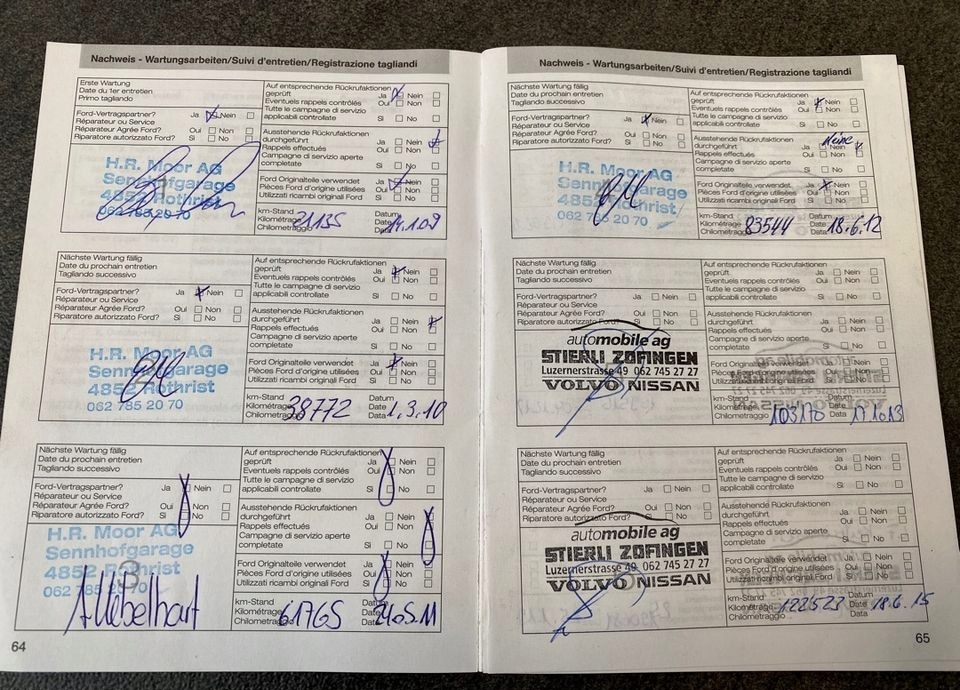 Nachweis - Wartungsarbeiten/Suivi d'entretien/Registrazione tagliandi
Erste Wartung
Date du 1er entretien
Primo tagliando
Auf entsprechende Rückrufaktionen
geprüft Ja Nein
Eventuels rappels contrôlés Oui Non
Tutte le campagne di servizio
applicabili controllate Si No
Ford-Vertragspartner? Ja Nein
Réparateur ou Service
Réparateur Agrée Ford? Oui Non
Riparatore autorizzato Ford? Si No
Ausstehende Rückrufaktionen
durchgeführt Ja Nein
Rappels effectués Oui Non
Campagne di servizio aperte
completate Si No
H.R. Moor AG
Sennhofgarage
4852 Rothrist
062 785 20 70
Ford Originalteile verwendet Ja Nein
Pièces Ford d'origine utilisées Oui Non
Utilizzati ricambi originali Ford Si No
km-Stand Datum
Kilométrage 21135 Date
Chilometraggio Data
Nächste Wartung fällig
Date du prochain entretien
Tagliando successivo
Auf entsprechende Rückrufaktionen
geprüft Ja Nein
Eventuels rappels contrôlés Oui Non
Tutte le campagne di servizio
applicabili controllate Si No
Ford-Vertragspartner? Ja Nein
Réparateur ou Service
Réparateur Agrée Ford? Oui Non
Riparatore autorizzato Ford? Si No
Ausstehende Rückrufaktionen
durchgeführt Ja Nein
Rappels effectués Oui Non
Campagne di servizio aperte
completate Si No
H.R. Moor AG
Sennhofgarage
4852 Rothrist
062 785 20 70
Ford Originalteile verwendet Ja Nein
Pièces Ford d'origine utilisées Oui Non
Utilizzati ricambi originali Ford Si No
km-Stand Datum
Kilométrage 38772 Date 1.3.10
Chilometraggio Data
Nächste Wartung fällig
Date du prochain entretien
Tagliando successivo
Auf entsprechende Rückrufaktionen
geprüft Ja Nein
Eventuels rappels contrôlés Oui Non
Tutte le campagne di servizio
applicabili controllate Si No
Ford-Vertragspartner? Ja Nein
Réparateur ou Service
Réparateur Agrée Ford? Oui Non
Riparatore autorizzato Ford? Si No
Ausstehende Rückrufaktionen
durchgeführt Ja Nein
Rappels effectués Oui Non
Campagne di servizio aperte
completate Si No
H.R. Moor AG
Sennhofgarage
4852 Rothrist
062 785 20 70
3
Ford Originalteile verwendet Ja Nein
Pièces Ford d'origine utilisées Oui Non
Utilizzati ricambi originali Ford Si No
km-Stand Datum
Kilométrage 61765 Date
Chilometraggio Data
64
Nachweis - Wartungsarbeiten/Suivi d'entretien/Registrazione tagliandi
Nächste Wartung fällig
Date du prochain entretien
Tagliando successivo
Auf entsprechende Rückrufaktionen
geprüft Ja Nein
Eventuels rappels contrôlés Oui Non
Tutte le campagne di servizio
applicabili controllate Si No
Ford-Vertragspartner? Ja Nein
Réparateur ou Service
Réparateur Agrée Ford? Oui Non
Riparatore autorizzato Ford? Si No
Ausstehende Rückrufaktionen keine
durchgeführt Ja Nein
Rappels effectués Oui Non
Campagne di servizio aperte
completate Si No
H.R. Moor AG
Sennhofgarage
4852 Rothrist
062 785 20 70
Ford Originalteile verwendet Ja Nein
Pièces Ford d'origine utilisées Oui Non
Utilizzati ricambi originali Ford Si No
km-Stand Datum
Kilométrage 83544 Date 18.6.12
Chilometraggio Data
Nächste Wartung fällig
Date du prochain entretien
Tagliando successivo
Auf entsprechende Rückrufaktionen
geprüft Ja Nein
Eventuels rappels contrôlés Oui Non
Tutte le campagne di servizio
applicabili controllate Si No
Ford-Vertragspartner? Ja Nein
Réparateur ou Service
Réparateur Agrée Ford? Oui Non
Riparatore autorizzato Ford? Si No
Ausstehende Rückrufaktionen
durchgeführt Ja Nein
Rappels effectués Oui Non
Campagne di servizio aperte
completate Si No
automobile ag
STIERLI ZOFINGEN
Luzernerstrasse 49 062 745 27 27
VOLVO NISSAN
Ford Originalteile verwendet Ja Nein
Pièces Ford d'origine utilisées Oui Non
Utilizzati ricambi originali Ford Si No
km-Stand Datum
Kilométrage 103170 Date 17.10.13
Chilometraggio Data
Nächste Wartung fällig
Date du prochain entretien
Tagliando successivo
Auf entsprechende Rückrufaktionen
geprüft Ja Nein
Eventuels rappels contrôlés Oui Non
Tutte le campagne di servizio
applicabili controllate Si No
Ford-Vertragspartner? Ja Nein
Réparateur ou Service
Réparateur Agrée Ford? Oui Non
Riparatore autorizzato Ford? Si No
Ausstehende Rückrufaktionen
durchgeführt Ja Nein
Rappels effectués Oui Non
Campagne di servizio aperte
completate Si No
automobile ag
STIERLI ZOFINGEN
Luzernerstrasse 49 062 745 27 27
VOLVO NISSAN
Ford Originalteile verwendet Ja Nein
Pièces Ford d'origine utilisées Oui Non
Utilizzati ricambi originali Ford Si No
km-Stand Datum
Kilométrage 122523 Date 18.6.15
Chilometraggio Data
65